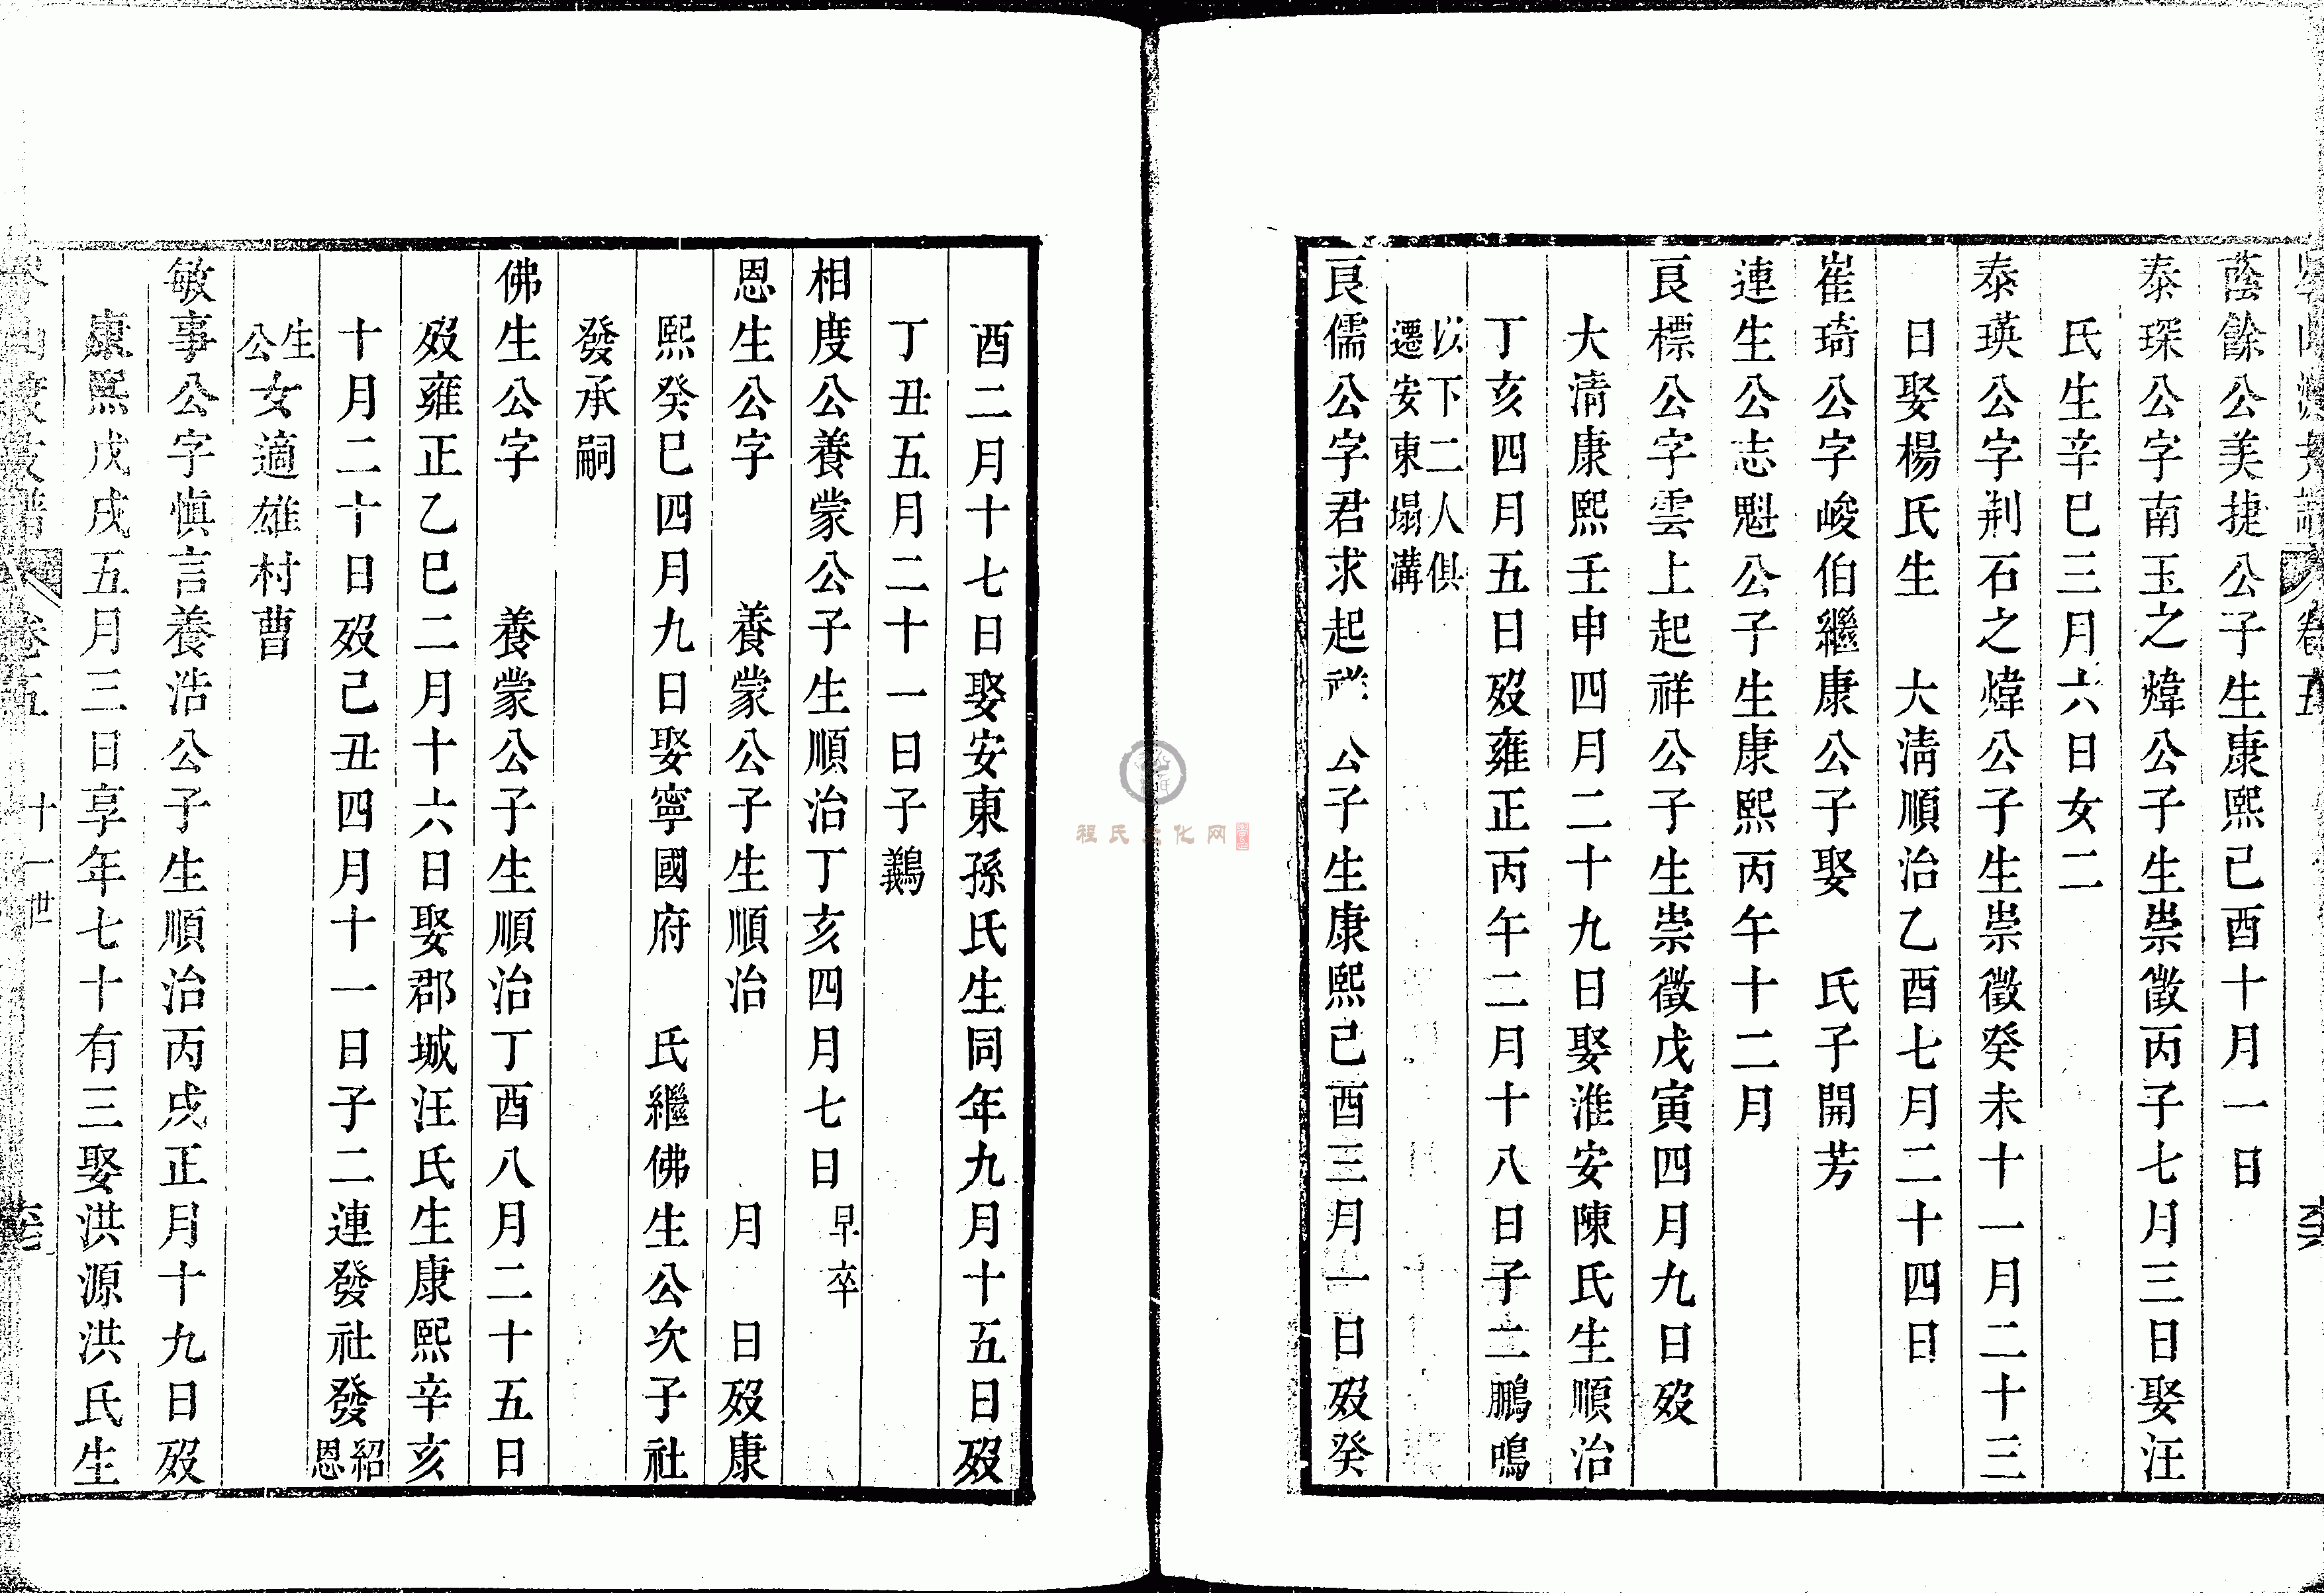 卷五
蔭餘公美捷公子生康熙己酉十月一日
泰琛公字南玉之煒公子生崇徵丙子七月三日娶汪
氏生辛巳三月六日女二
泰瑛公字荆石之煒公子生崇徵癸未十一月二十三
日娶楊氏生 大清順治乙酉七月二十四日
崔琦公字峻伯繼康公子娶 氏子開芳
連生公志魁公子生康熙丙午十二月
良標公字雲上起祥公子生崇徵戊寅四月九日歿
大清康熙壬申四月二十九日娶淮安陳氏生順治
丁亥四月五日歿雍正丙午二月十八日子二鵬鳴
以下二人俱
遷安東塌溝
良儒公字君求起祥公子生康熙己酉三月一日歿癸
酉二月十七日娶安東孫氏生同年九月十五日歿
丁丑五月二十一日子鵜
相度公養蒙公子生順治丁亥四月七日早卒
恩生公字 養蒙公子生順治 月 日歿康
熙癸巳四月九日娶寧國府 氏繼佛生公次子社
發承嗣
佛生公字 養蒙公子生順治丁酉八月二十五日
歿雍正乙巳二月十六日娶郡城汪氏生康熙辛亥
十月二十日歿己丑四月十一日子二連發社發紹恩
生公女適雄村曹
敏事公字慎言養浩公子生順治丙戌正月十九日歿
康熙戊戌五月三日享年七十有三娶洪源洪氏生
卷五 十一世
程氏文化网